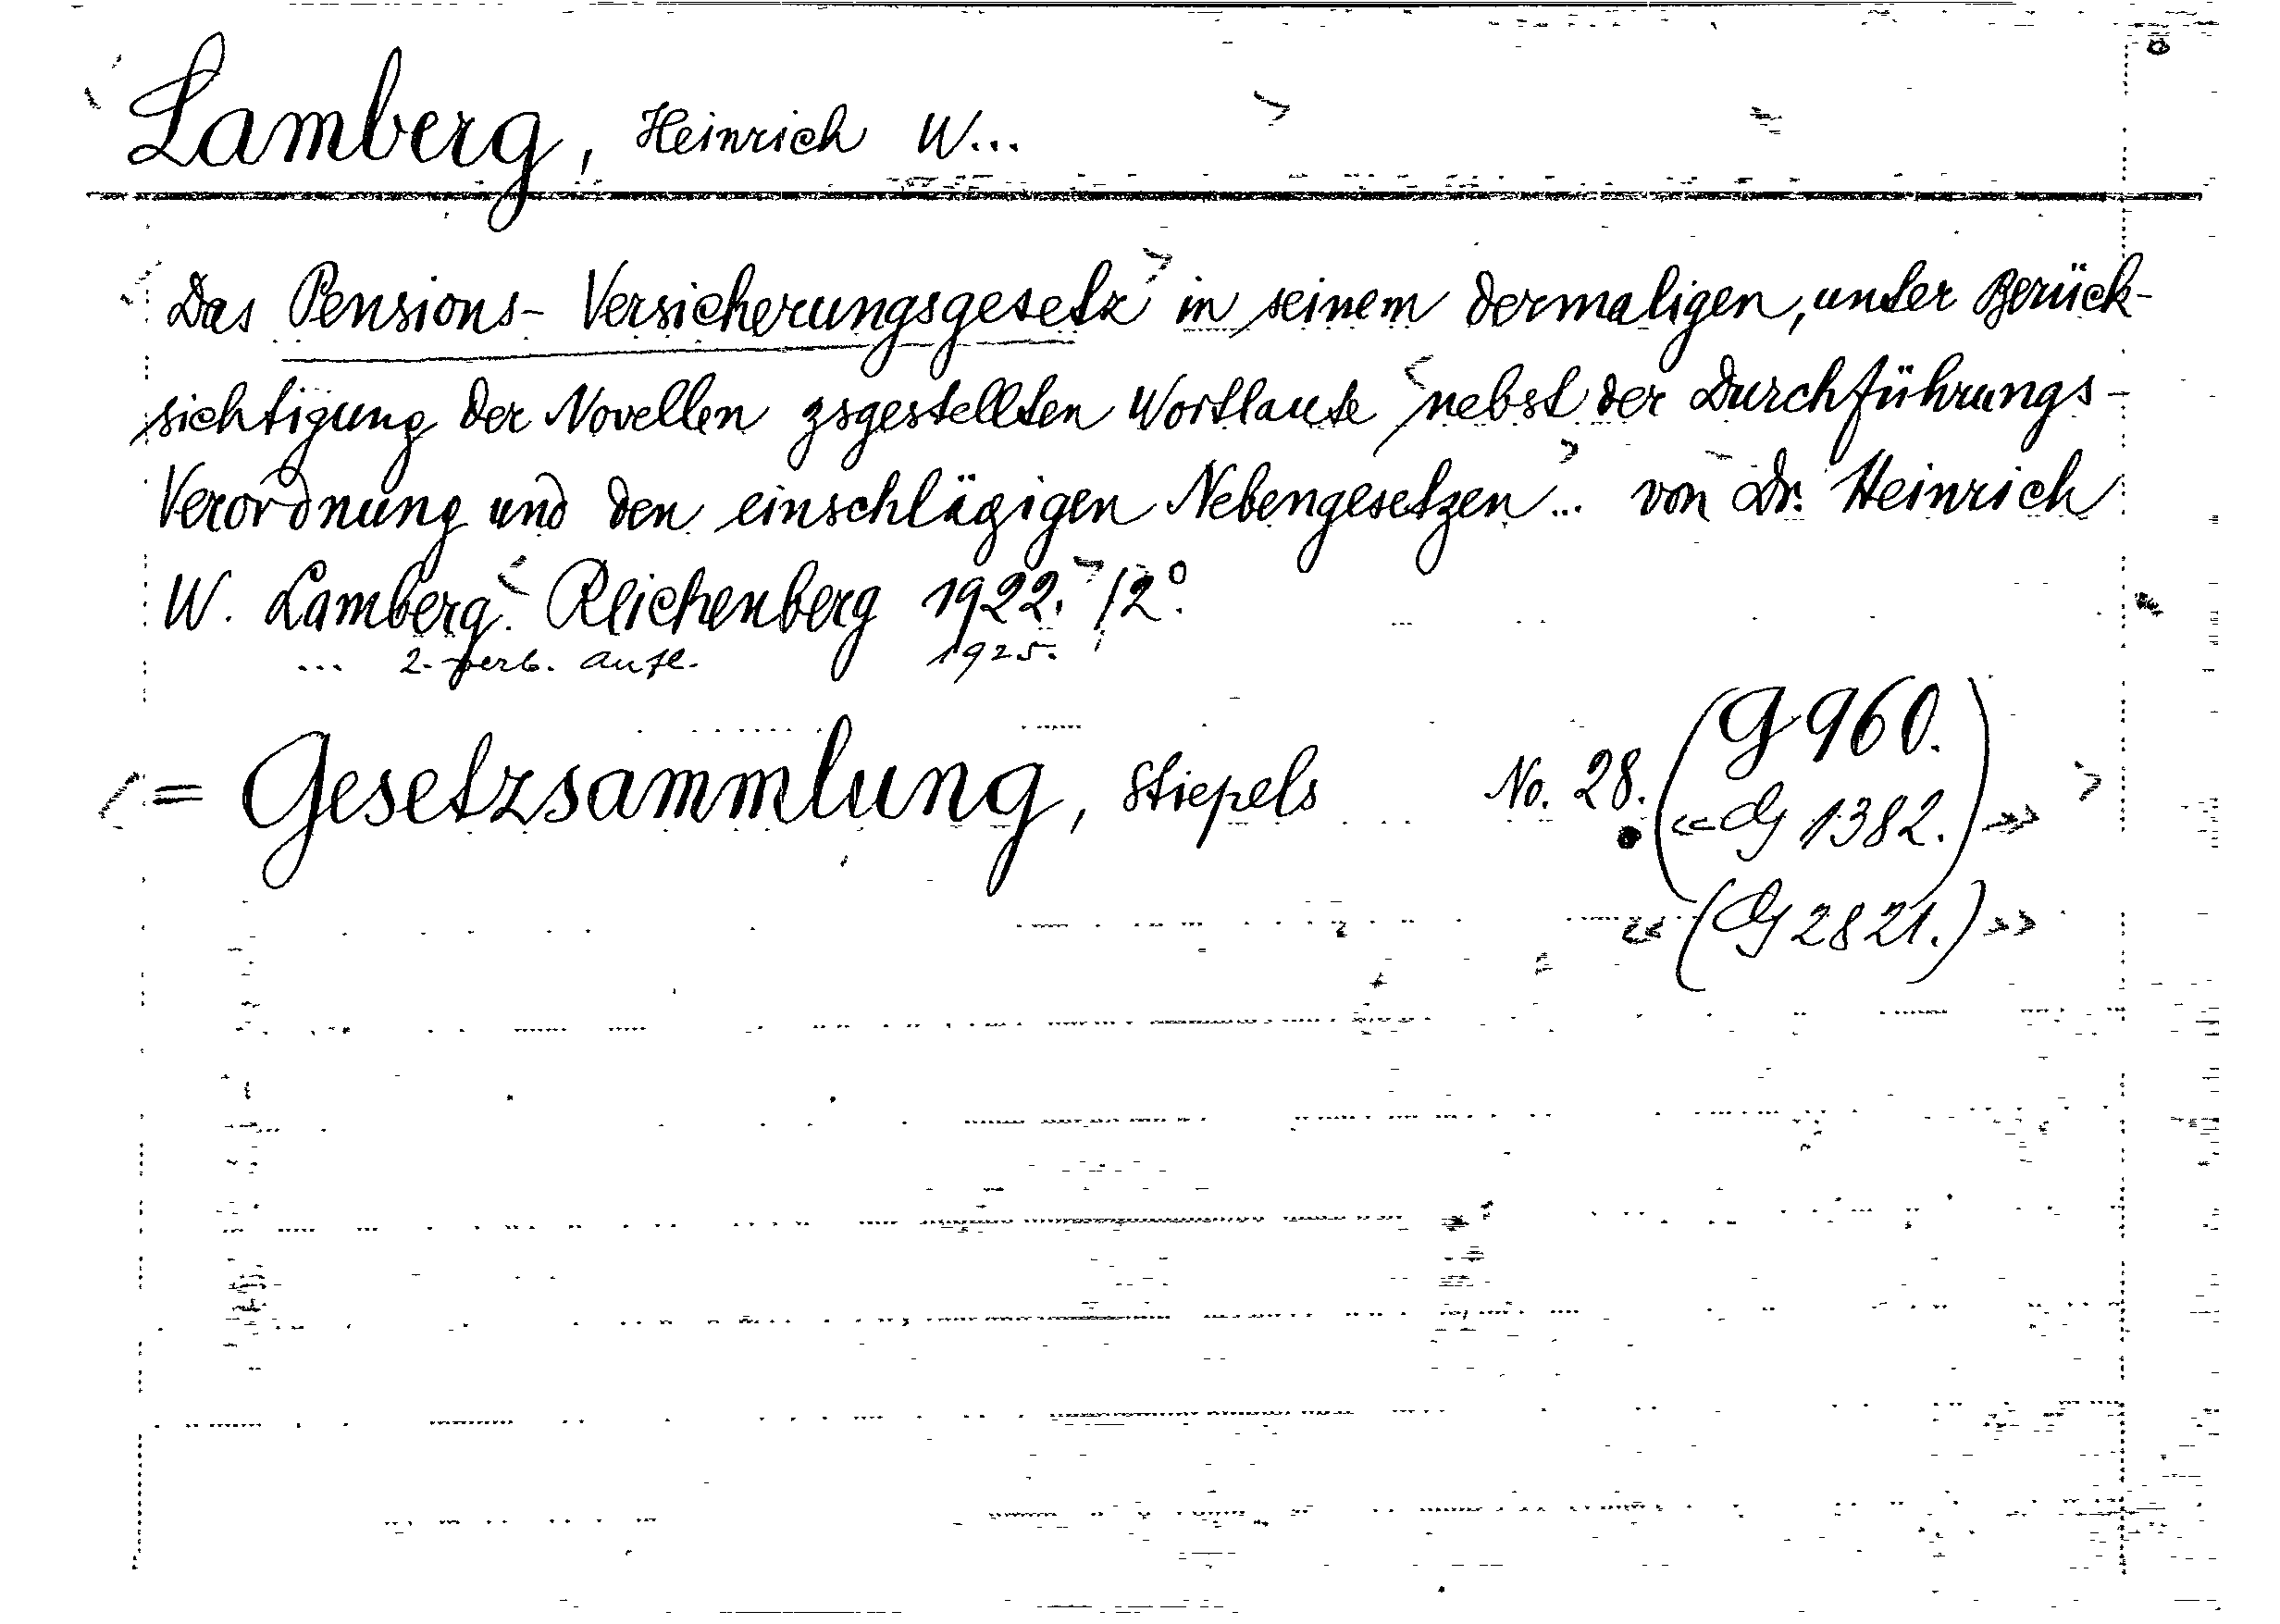 Lamberg, Heinrich W...
Das Pensions-Versicherungsgesetz in seinem dermaligen, unter Berück-
sichtigung der Novellen zsgestellten Wortlaute nebst der Durchführungs-
Verordnung und den einschlägigen Nebengesetzen... von Dr. Heinrich
W. Lamberg. Reichenberg 1922. 12°.
... 2. verb. Aufl. 1925.
= Gesetzsammlung, Stiepels No. 28. (G 960.
«G 1382.)»
«(G 2821.)»